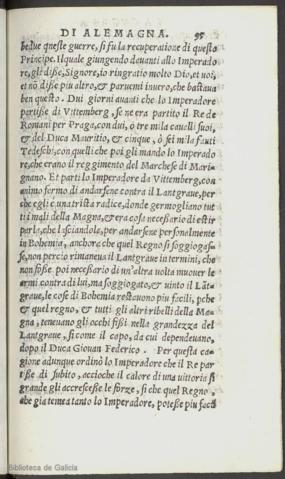 DI ALEMAGNA. 95
bedue queste guerre, si fu la recuperatione di questo
Principe. Il quale giungendo deuanti allo Imperado
re, gli diße, Signore, io ringratio molto Dio, et uoi,
et nō diße piu altro, & paruemi inuero, che bastaua
ben questo. Dui giorni auanti che lo Imperadore
partiße di Vittemberg, se ne era partito il Re de
Romani per Praga, con dui, ò tre mila caualli suoi,
& del Duca Mauritio, & cinque, ò sei mila fanti
Tedeschi, con quelli che poi gli mando lo Imperado
re, che erano il reggimento del Marchese di Mari-
gnano. Et partì lo Imperadore da Vittemberg, con
animo fermo di andarsene contra il Lantgraue, per
che egli è una trista radice, donde germogliano tut
ti i mali della Magna, & era cosa necesario di estir
parla, che lasciandola, per andarsene personalmente
in Bohemia, anchora che quel Regno si soggiogas-
se, non percio rimaneua il Lantgraue in termini, che
non foße poi necesario di un'altra uolta muouer le
armi contra di lui, ma soggiogato, & uinto il Lāt-
graue, le cose di Bohemia restauono piu facili, pche
& quel regno, & tutti gli altri ribelli della Ma
gna, teneuano gli occhi fißi nella grandezza del
Lantgraue, sì come il capo, da cui dependeuano,
dopo il Duca Giouan Federico. Per questa ca-
gione adunque ordinò lo Imperadore che il Re par
tiße di subito, accioche il calore di una uittoria sì
grande gli accresceße le forze, sì che quel Regno
che gia temea tanto lo Imperadore, poteße piu facil
Biblioteca de Galicia